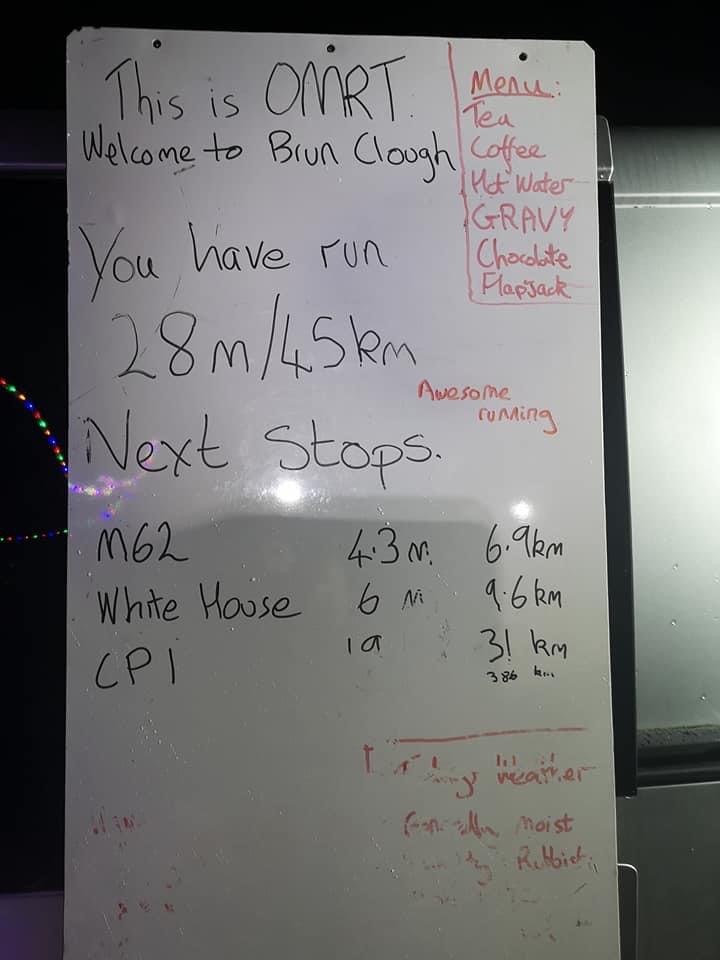 This is OMRT.
Welcome to Brun Clough
Menu:
Tea
Coffee
Hot Water
GRAVY
Chocolate
Flapjack
You have run
28m/45km
Awesome
running
Next Stops.
M62 4.3 m. 6.9km
White House 6 Mi 9.6 km
CP1 19 31 km
386
weather
moist